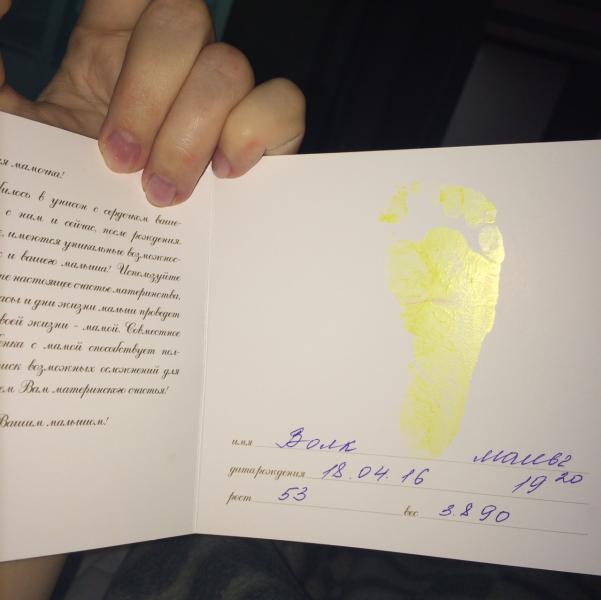 я мамочка!
билось в унисон с сердечком ваше-
с ним и сейчас, после рождения.
, имеются уникальные возможно-
с и вашего малыша! Используйте
те настоящее счастье материнства,
асы и дни жизни малыш проведет
воей жизни - мамой. Совместное
бёнка с мамой способствует пол-
риск возможных осложнений для
ем Вам материнского счастья!
Вашим малышом!
имя Волк
дата рождения 18.04.16 19 20
рост 53 вес 3.890